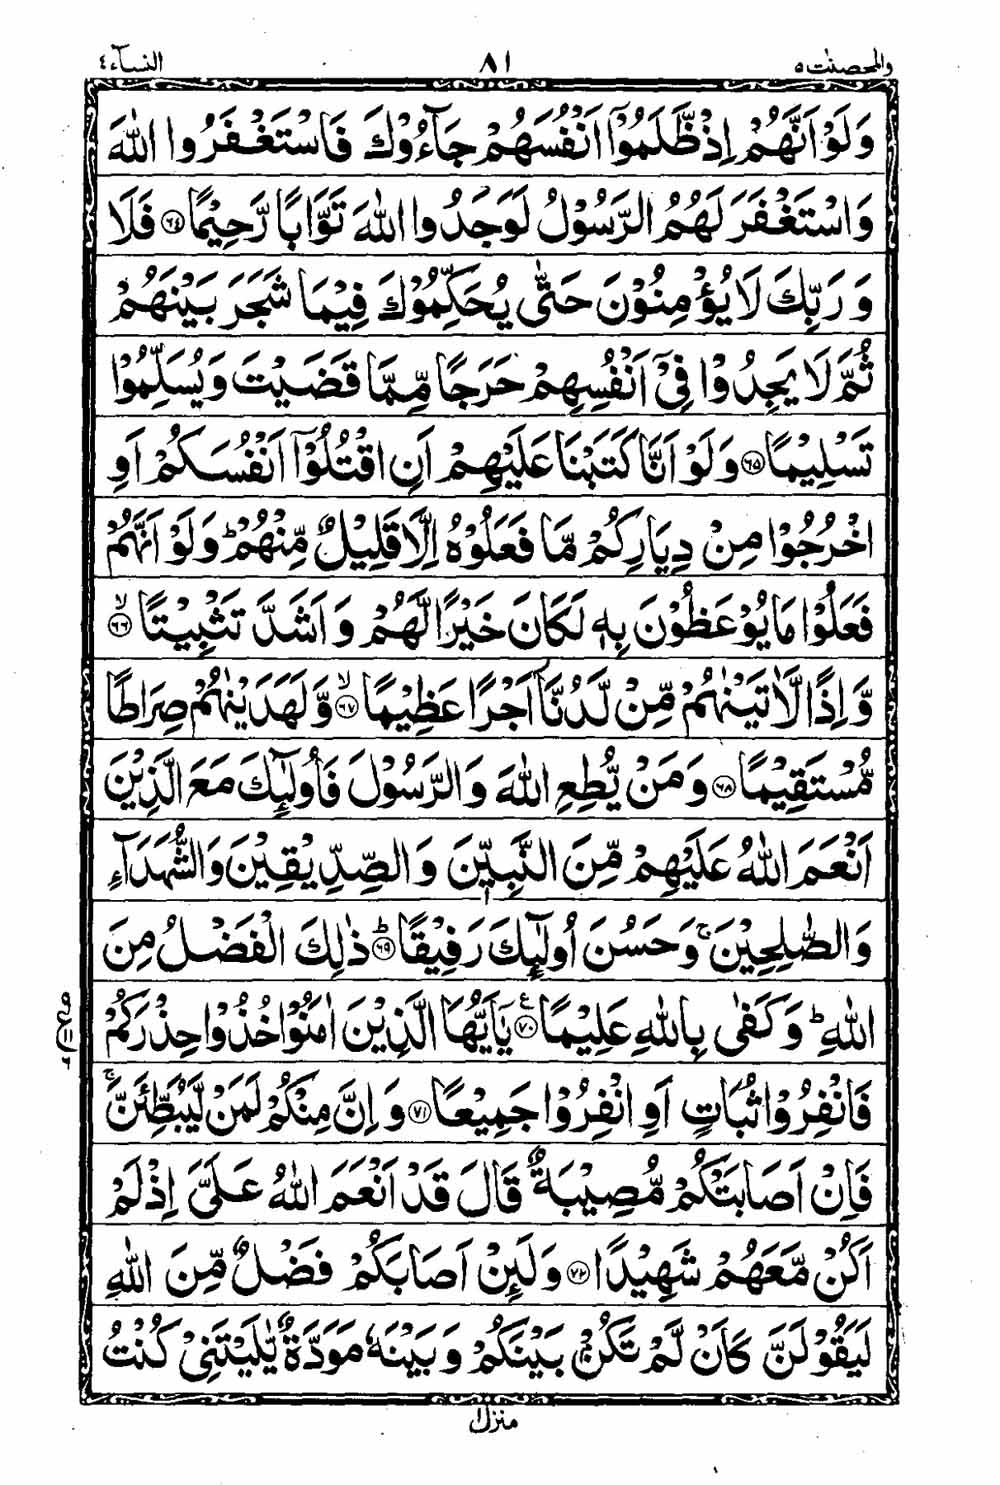 والمحصنت ٥ ٨١ النسآء ٤
وَلَوْ اَنَّهُمْ اِذْ ظَّلَمُوْۤا اَنْفُسَهُمْ جَآءُوْكَ فَاسْتَغْفَرُوا اللّٰهَ
وَاسْتَغْفَرَ لَهُمُ الرَّسُوْلُ لَوَجَدُوا اللّٰهَ تَوَّابًا رَّحِيْمًا ﴿٦٤﴾ فَلَا
وَ رَبِّكَ لَا يُؤْمِنُوْنَ حَتّٰى يُحَكِّمُوْكَ فِيْمَا شَجَرَ بَيْنَهُمْ
ثُمَّ لَا يَجِدُوْا فِيْۤ اَنْفُسِهِمْ حَرَجًا مِّمَّا قَضَيْتَ وَيُسَلِّمُوْا
تَسْلِيْمًا ﴿٦٥﴾ وَلَوْ اَنَّا كَتَبْنَا عَلَيْهِمْ اَنِ اقْتُلُوْۤا اَنْفُسَكُمْ اَوِ
اخْرُجُوْا مِنْ دِيَارِكُمْ مَّا فَعَلُوْهُ اِلَّا قَلِيْلٌ مِّنْهُمْ ؕ وَلَوْ اَنَّهُمْ
فَعَلُوْا مَا يُوْعَظُوْنَ بِهٖ لَكَانَ خَيْرًا لَّهُمْ وَاَشَدَّ تَثْبِيْتًا ﴿٦٦﴾ۙ
وَّاِذًا لَّاٰتَيْنٰهُمْ مِّنْ لَّدُنَّاۤ اَجْرًا عَظِيْمًا ﴿٦٧﴾ۙ وَّلَهَدَيْنٰهُمْ صِرَاطًا
مُّسْتَقِيْمًا ﴿٦٨﴾ وَمَنْ يُّطِعِ اللّٰهَ وَالرَّسُوْلَ فَاُولٰٓئِكَ مَعَ الَّذِيْنَ
اَنْعَمَ اللّٰهُ عَلَيْهِمْ مِّنَ النَّبِيّٖنَ وَالصِّدِّيْقِيْنَ وَالشُّهَدَآءِ
وَالصّٰلِحِيْنَ ۚ وَحَسُنَ اُولٰٓئِكَ رَفِيْقًا ﴿٦٩﴾ؕ ذٰلِكَ الْفَضْلُ مِنَ
اللّٰهِ ؕ وَكَفٰى بِاللّٰهِ عَلِيْمًا ﴿٧٠﴾ۧ يٰۤاَيُّهَا الَّذِيْنَ اٰمَنُوْا خُذُوْا حِذْرَكُمْ
فَانْفِرُوْا ثُبَاتٍ اَوِ انْفِرُوْا جَمِيْعًا ﴿٧١﴾ وَاِنَّ مِنْكُمْ لَمَنْ لَّيُبَطِّئَنَّ ۚ
فَاِنْ اَصَابَتْكُمْ مُّصِيْبَةٌ قَالَ قَدْ اَنْعَمَ اللّٰهُ عَلَيَّ اِذْ لَمْ
اَكُنْ مَّعَهُمْ شَهِيْدًا ﴿٧٢﴾ وَلَئِنْ اَصَابَكُمْ فَضْلٌ مِّنَ اللّٰهِ
لَيَقُوْلَنَّ كَاَنْ لَّمْ تَكُنْۢ بَيْنَكُمْ وَبَيْنَهٗ مَوَدَّةٌ يّٰلَيْتَنِيْ كُنْتُ
منزل ١